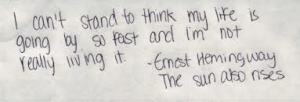 I can't stand to think my life is
going by so fast and i'm not
really living it. -Ernest Hemingway
The sun also rises